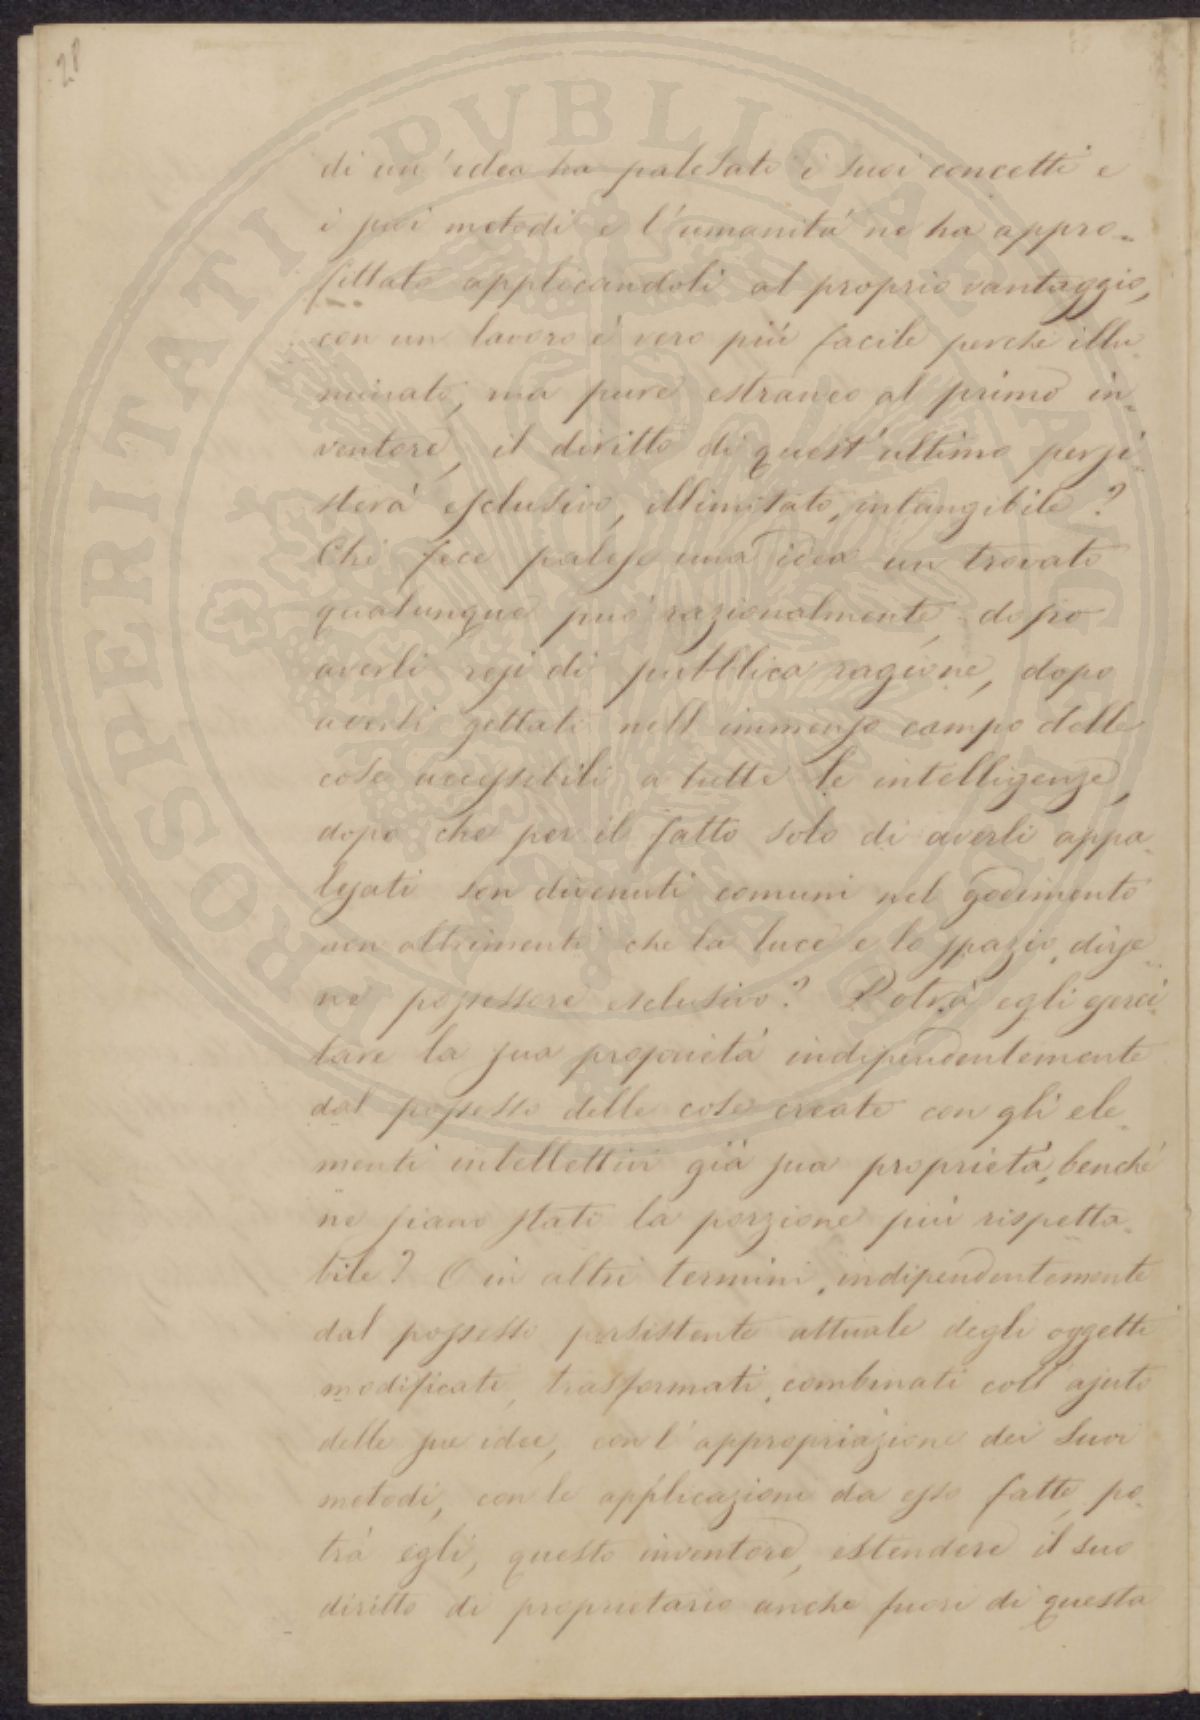 28
di un' idea ha palesato i suoi concetti e
i suoi metodi e l'umanità ne ha appro-
fittato applicandoli al proprio vantaggio,
con un lavoro è vero più facile perchè illu-
minato, ma pure estraneo al primo in-
ventore, il diritto di quest'ultimo persi-
sterà esclusivo, illimitato, intangibile?
Chi fece palese una idea un trovato
qualunque può razionalmente, dopo
averli resi di pubblica ragione, dopo
averli gettati nell immenso campo delle
cose accessibili a tutte le intelligenze,
dopo che per il fatto solo di averli appa-
lesati son divenuti comuni nel godimento
non altrimenti che la luce e lo spazio, dirse-
ne possessore esclusivo? Potrà egli eserci-
tare la sua proprietà indipendentemente
dal possesso delle cose create con gli ele-
menti intellettivi già sua proprietà, benchè
ne siano state la porzione più rispetta-
bile? O in altri termini, indipendentemente
dal possesso persistente attuale degli oggetti
modificati, trasformati, combinati coll' ajuto
delle sue idee, con l'appropriazione dei suoi
metodi, con le applicazioni da esso fatte, po-
trà egli, questo inventore, estendere il suo
diritto di proprietario anche fuori di questa
PROSPERITATI PUBLICAE AUGENDAE